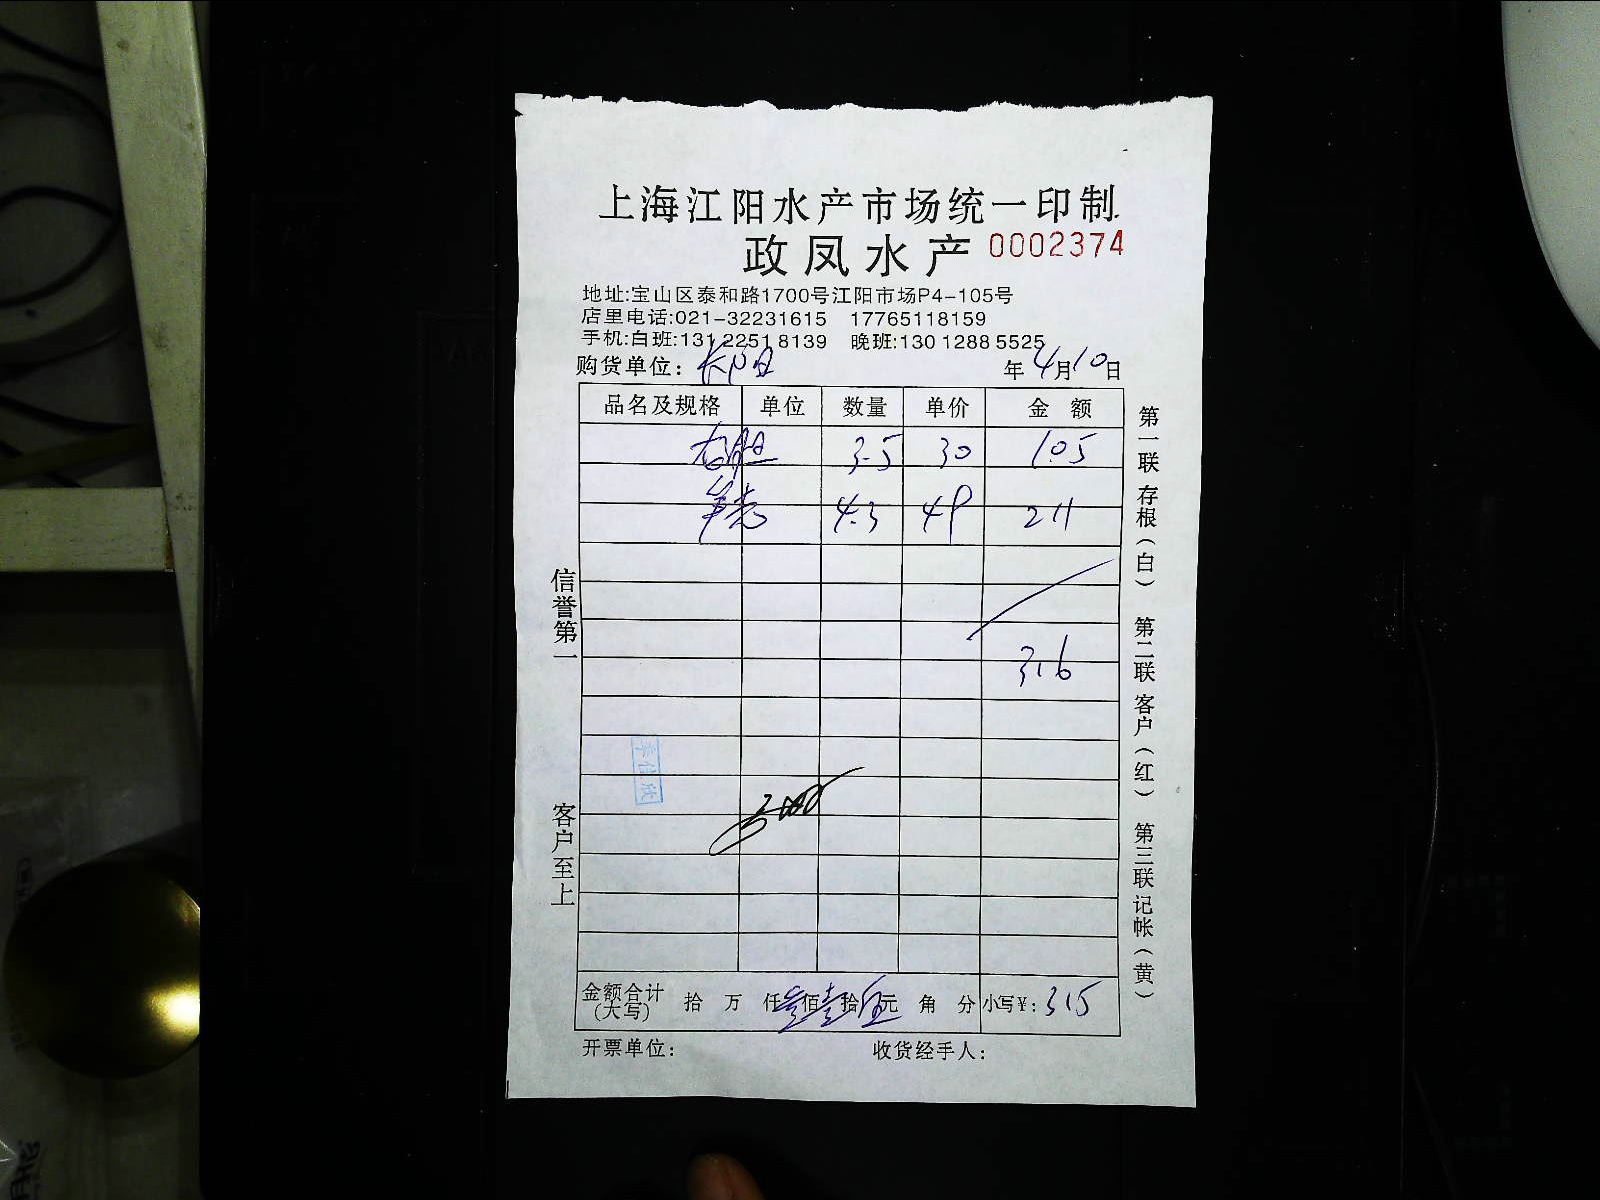 上海江阳水产市场统一印制
政凤水产 0002374
地址:宝山区泰和路1700号江阳市场P4-105号
店里电话:021-32231615 17765118159
手机:白班:131 2251 8139 晚班:130 1288 5525
购货单位: 长阳 年4月10日
品名及规格 单位 数量 单价 金额
3.5 30 105
4.3 49 211
316
信誉第一
客户至上
第一联 存根(白) 第二联 客户(红) 第三联 记帐(黄)
金额合计(大写) 拾 万 仟 叁佰 壹拾 伍元 角 分 小写¥: 315
开票单位: 收货经手人: